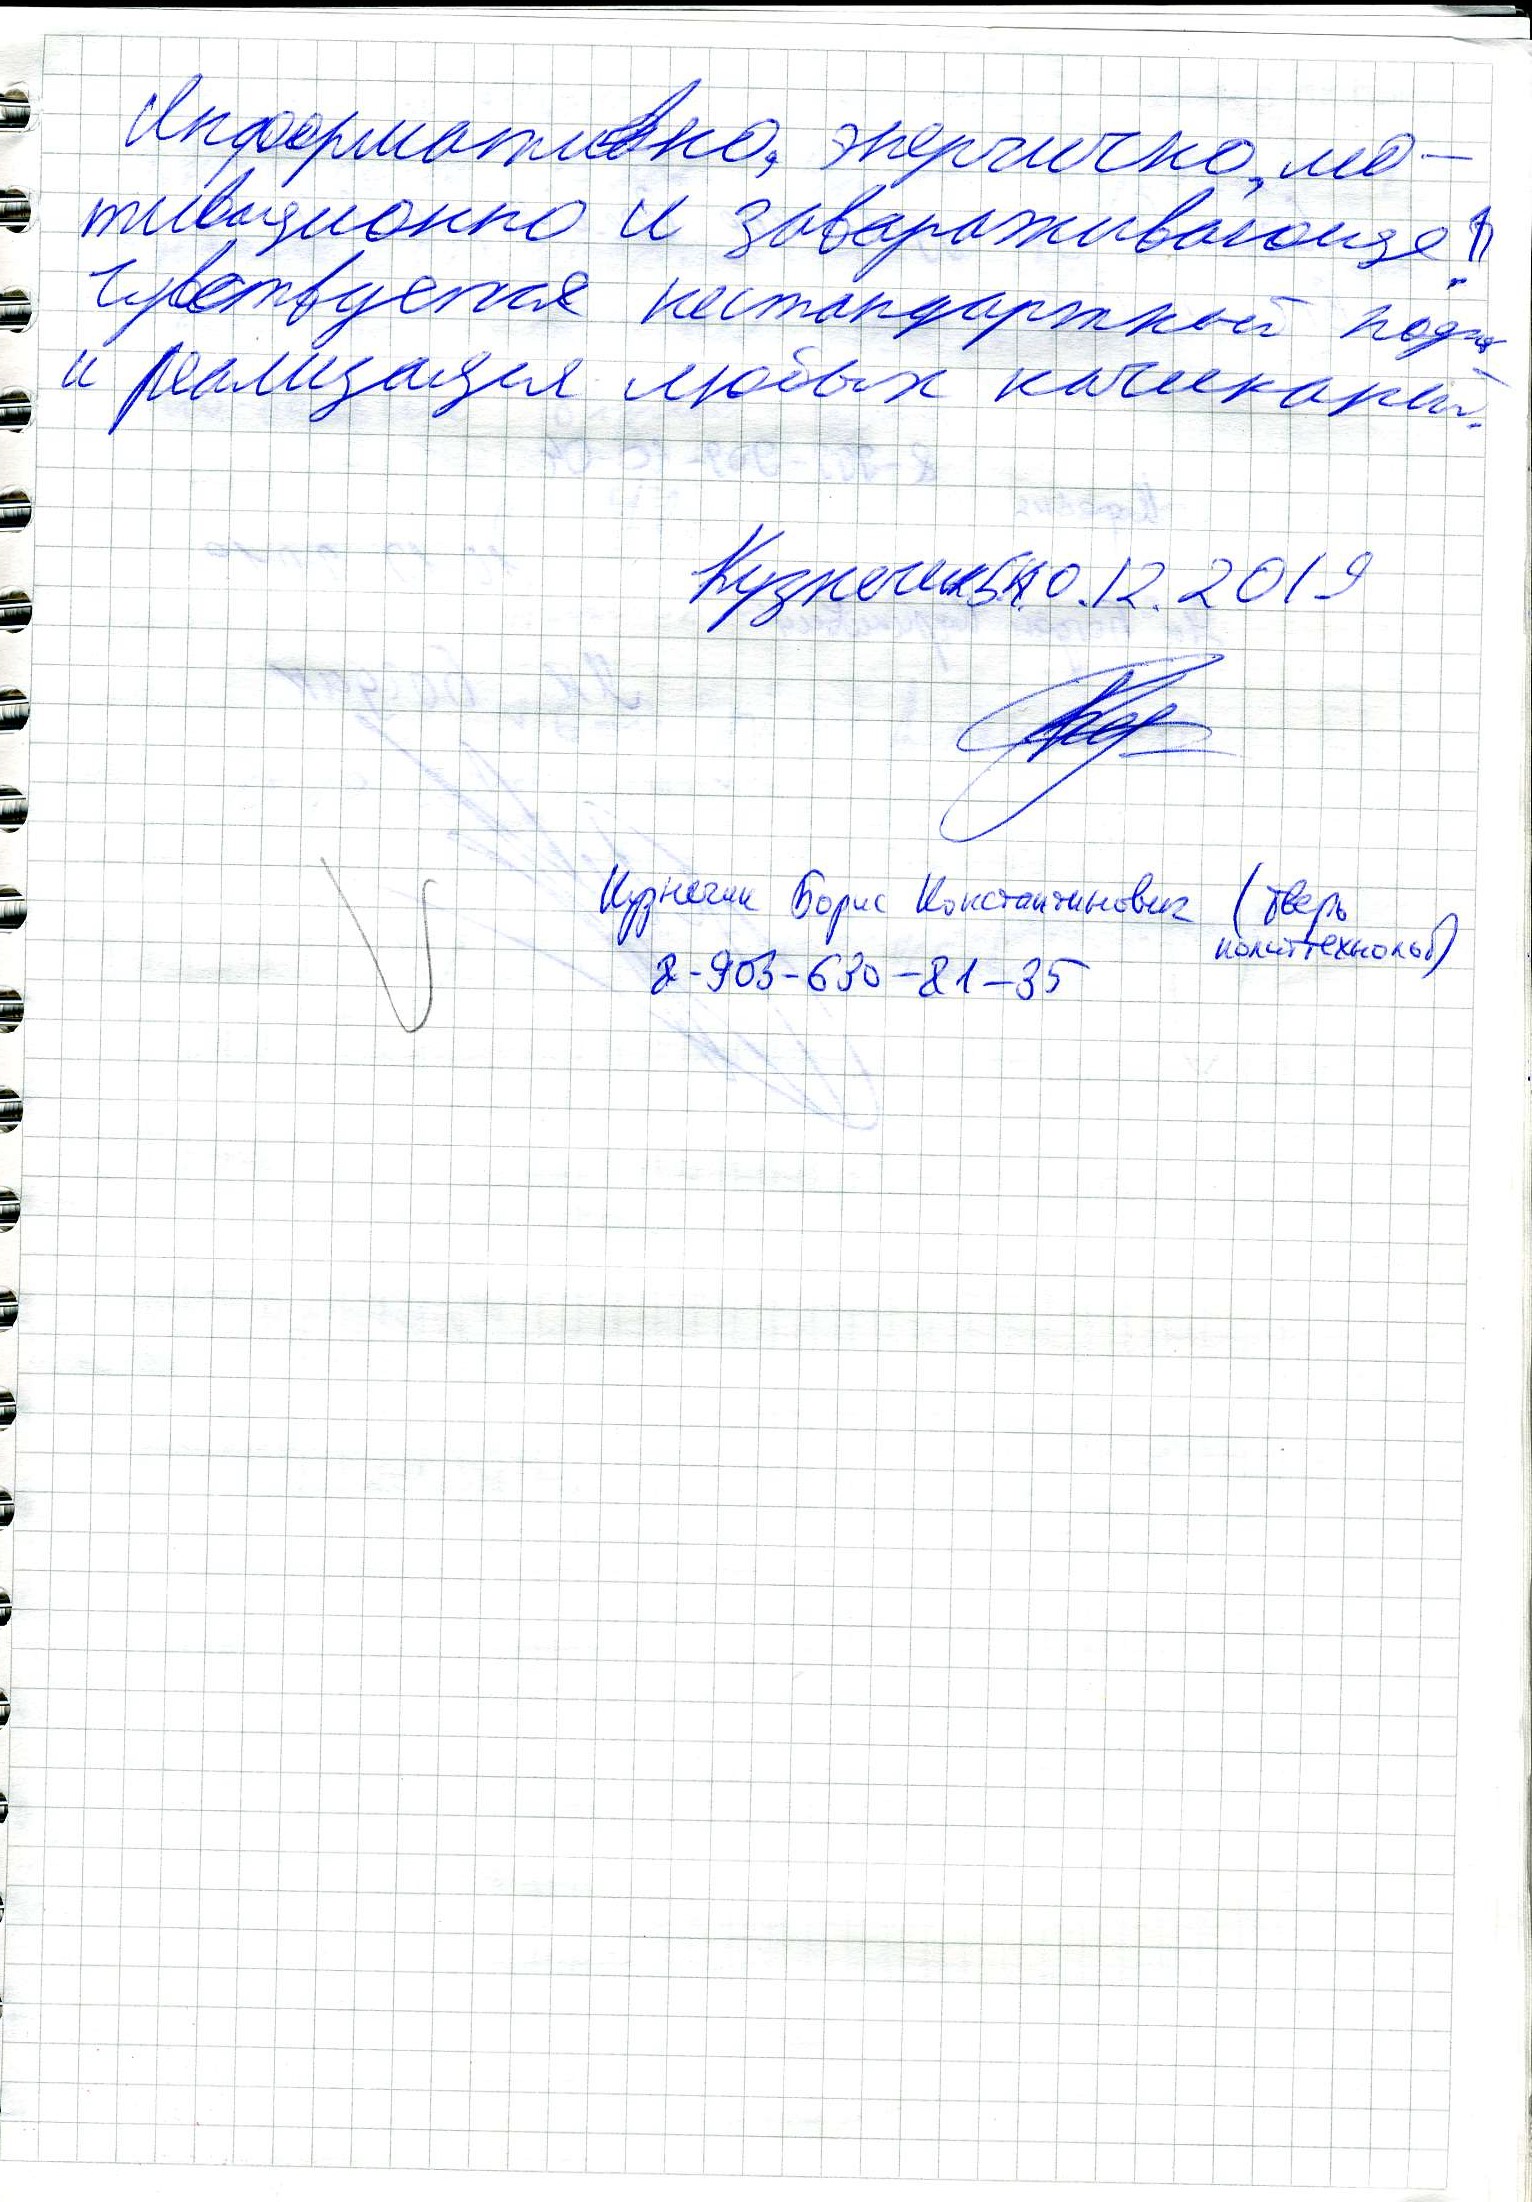 Информативно, энергично, мо-
тивационно и завараживающе!!
Чувствуется нестандартный
и реализация любых начинаний.
10.12.2019
Кузнечик Борис Константинович (Тверь
политтехнолог)
8-903-630-81-35